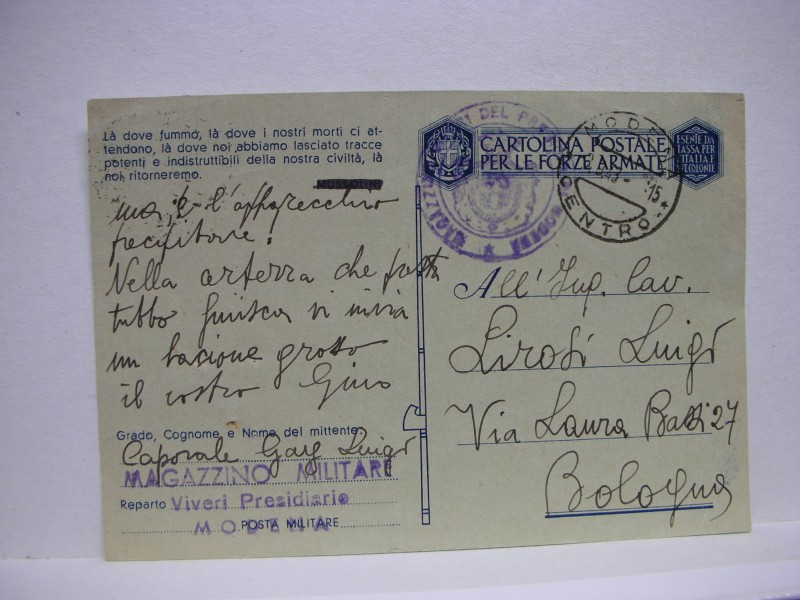 Là dove fummo, là dove i nostri morti ci at-
tendono, là dove noi abbiamo lasciato tracce
potenti e indistruttibili della nostra civiltà, là
noi ritorneremo.
MUSSOLINI
ma, è l'apparecchio
Nella certezza che presto
tutto finisca vi invia
un bacione grosso
il vostro Gino
Grado, Cognome e Nome del mittente:
Caporale Luigi
MAGAZZINO MILITARE
Reparto Viveri Presidiario
MODENA
POSTA MILITARE
CARTOLINA POSTALE
PER LE FORZE ARMATE
ESENTE DA
TASSA PER
L'ITALIA E
COLONIE
MODENA
CENTRO
DEL PRE
MAGAZZ
MODENA
All' Ing. Cav.
Lirosi Luigi
Via Laura Bassi 27
Bologna